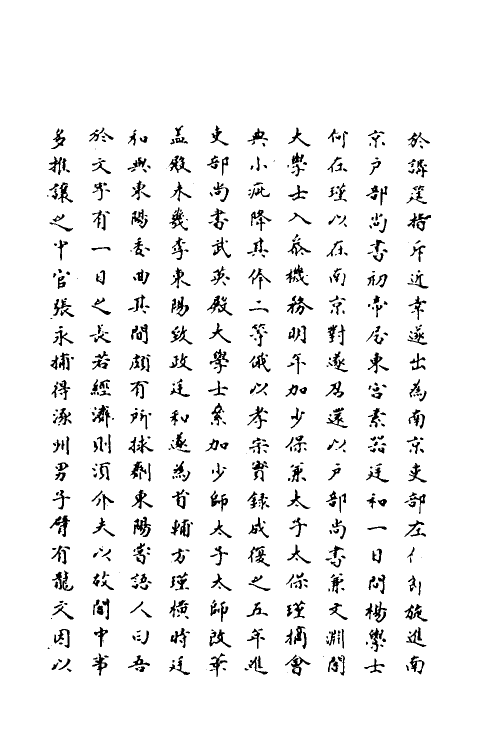 於講筵指斥近幸遂出為南京吏部左侍郎旋進南
京戶部尚書初帝居東宮素器廷和一日問楊學士
何在瑾以在南京對遂召還以戶部尚書兼文淵閣
大學士入叅機務明年加少保兼太子太保瑾摘會
典小疵降其俸二等俄以孝宗實錄成復之五年進
吏部尚書武英殿大學士累加少師太子太師改華
蓋殿未幾李東陽致政廷和遂為首輔方瑾橫時廷
和與東陽委曲其間頗有所捄劑東陽嘗語人曰吾
於文字有一日之長若經濟則須介夫以故閣中事
多推讓之中官張永捕得涿州男子臂有龍文因以